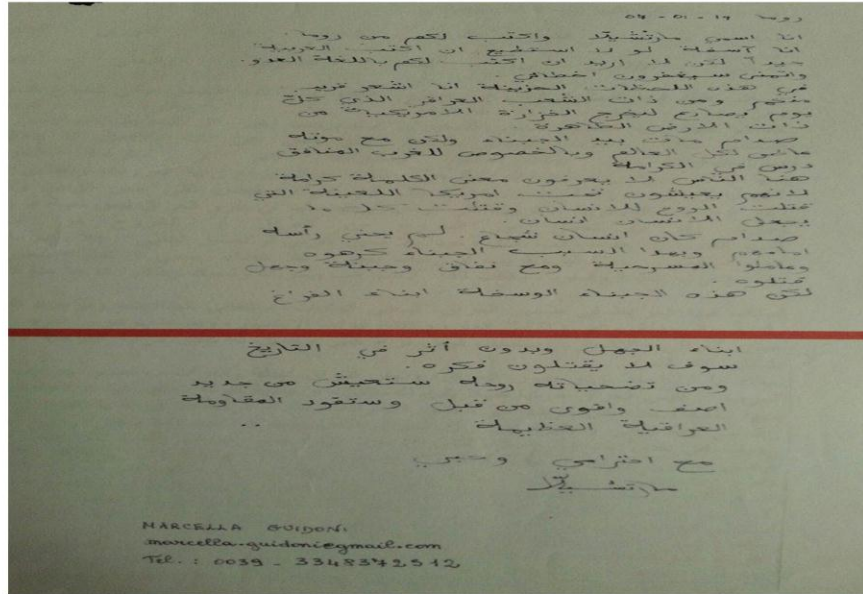 روما 17 - 01 - 07
انا اسمي مارتشيلا واكتب لكم من روما.
انا آسفة لو لا استطيع ان اكتب العربية
جيداً لكن لا اريد ان اكتب لكم باللغة العدو.
واتمنى ستغفرون اخطائي.
في هذه اللحظات الحزينة انا اشعر قريب
منكم ومن ذات الشعب العراقي الذي كل
يوم يصارع ليخرج القزارة الامريكية من
ذات الارض الطاهرة.
صدام مات بيد الجبناء ولكن مع موته
لكل العالم وبالخصوص للغرب المنافق
درس في الكرامة
هنا الناس لا يعرفون معنى الكلمة كرامة
لانهم يعيشون تحت امريكا اللعينة التي
قتلت الروح للانسان وقتلت كل ما
يجعل الانسان انسان.
صدام كان انسان شجاع. لم يحني رأسه
امامهم وبهذا السبب الجبناء كرهوه
وعاملوا المسرحية ومع نفاق وجبنة وجهل
قتلوه.
لكن هذه الجبناء الوسخة ابناء الفراغ
ابناء الجهل وبدون أثر في التاريخ
سوف لا يقتلون فكره.
ومن تضحياته روحه ستعيش من جديد
اصف واقوى من قبل وستقود المقاومة
العراقية العظيمة
مع احترامي وحبي
مارتشيلا
MARCELLA GUIDONI
marcella.guidoni@gmail.com
Tel.: 0039 - 3348372512